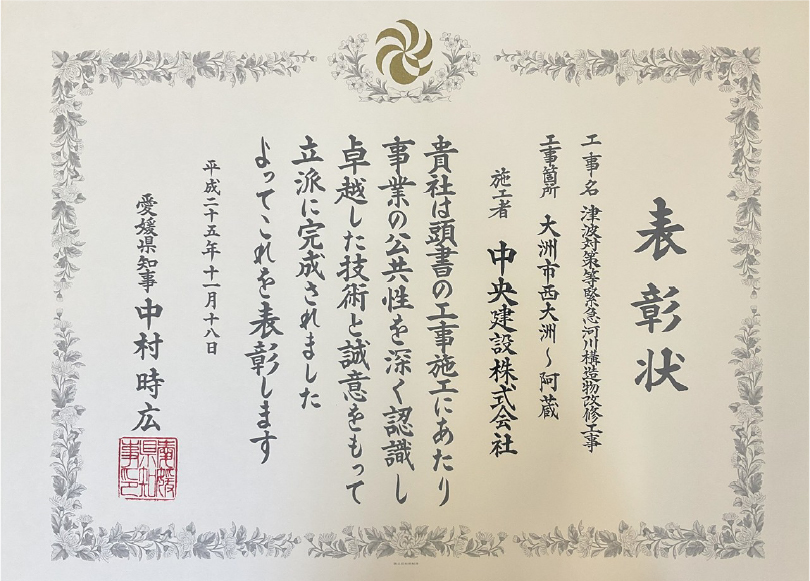 表彰状
工事名 津波対策等緊急河川構造物改修工事
工事箇所 大洲市西大洲～阿蔵
施工者 中央建設株式会社
貴社は頭書の工事施工にあたり
事業の公共性を深く認識し
卓越した技術と誠意をもって
立派に完成されました
よってこれを表彰します
平成二十五年十一月十八日
愛媛県知事 中村時広
愛媛
県知
事印